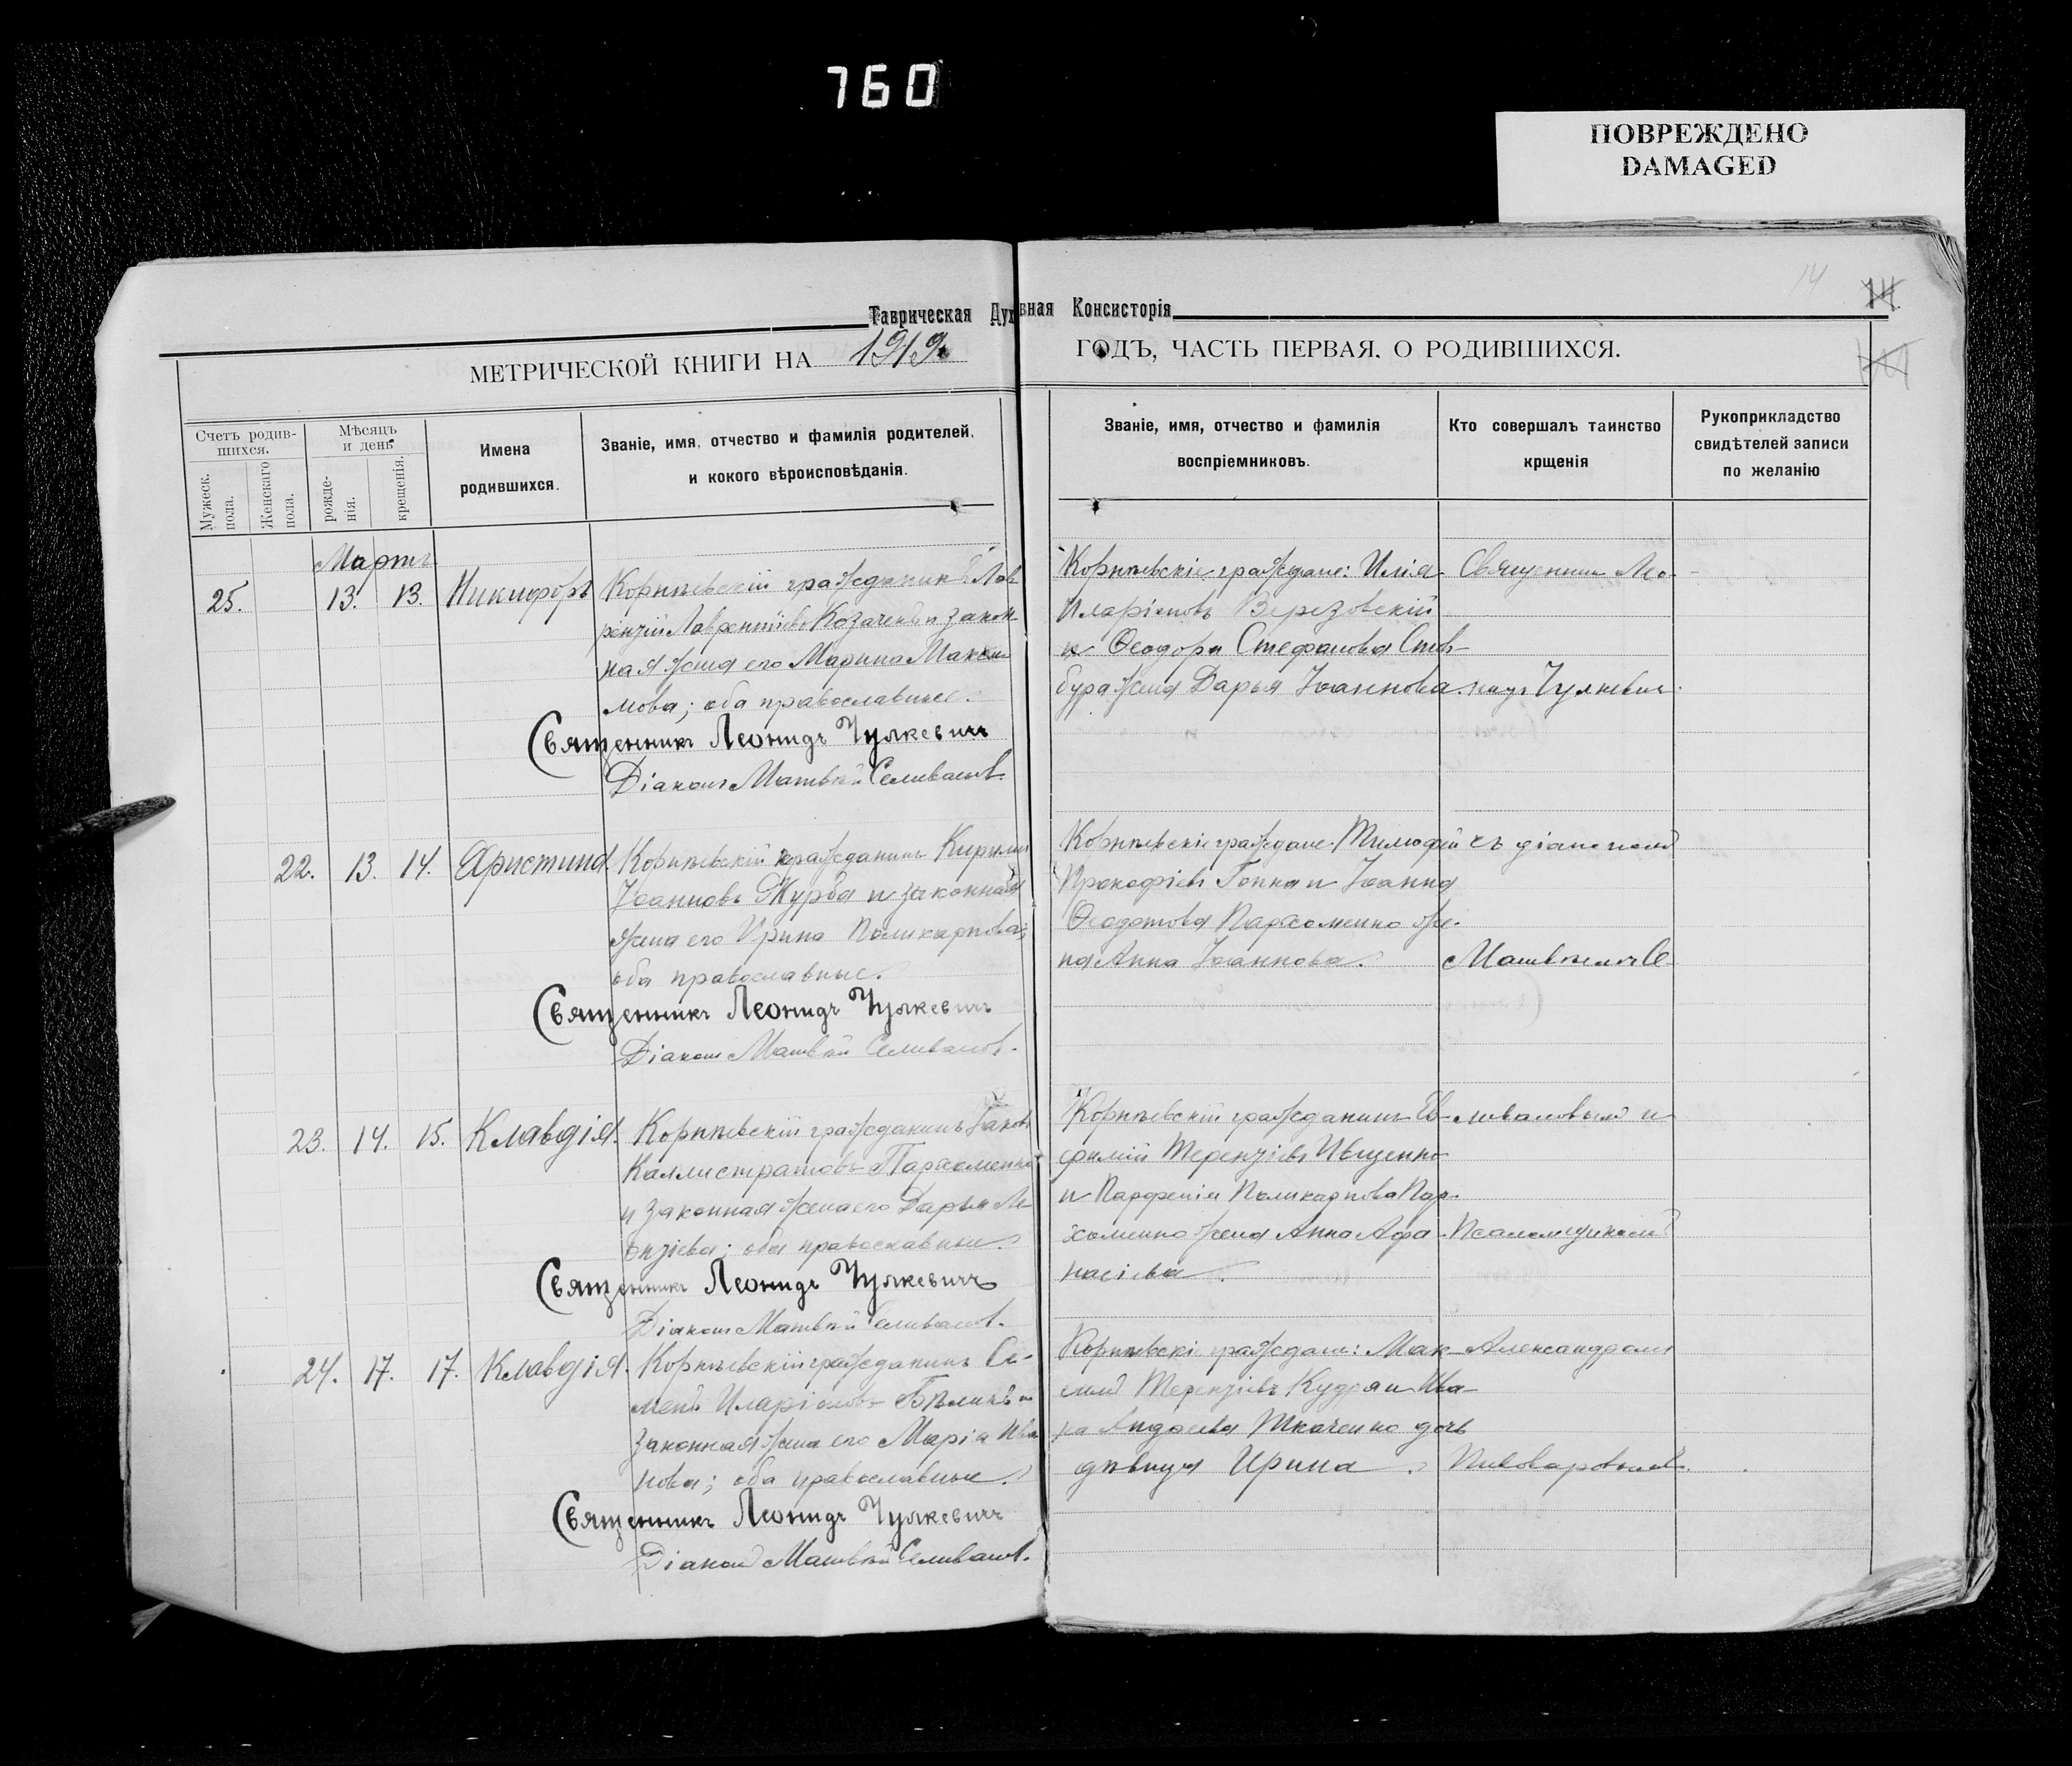 760
ПОВРЕЖДЕНО
DAMAGED
14
Таврическая Духовная Консисторія
МЕТРИЧЕСКОЙ КНИГИ НА 1919 ГОДЪ, ЧАСТЬ ПЕРВАЯ. О РОДИВШИХСЯ.
Счетъ родившихся.
Мужеск. пола.
Женскаго пола.
Мѣсяцъ и день
рожденія.
крещенія.
Имена родившихся.
Званіе, имя, отчество и фамилія родителей,
и кокого вѣроисповѣданія.
Званіе, имя, отчество и фамилія
воспріемниковъ.
Кто совершалъ таинство
крщенія
Рукоприкладство
свидѣтелей записи
по желанію
Мартъ
25. 13. 13. Никифоръ
Корнѣевскій гражданинъ Лав
рентій Лаврентіевъ Козаченко и закон
ная жена его Марина Макси
мова; оба православные.
Священникъ Леонидъ Чулкевичъ
Діаконъ Матвѣй Селивановъ.
Корнѣевскіе граждане: Илія
Иларіоновъ Верезовскій
и Ѳеодора Стефанова
жена Дарья Іоаннова.
Священникъ Лео-
нидъ Чулкевичъ.
22. 13. 14. Христина.
Корнѣевскій гражданинъ Кириллъ
Іоанновъ Журба и законная
жена его Ирина Поликарпова;
оба православные.
Священникъ Леонидъ Чулкевичъ
Діаконъ Матвѣй Селивановъ.
Корнѣевскіе граждане: Тимофей
Прокофіевъ Гопка и Іоанна
Ѳеодотова Пархоменко же-
на Анна Іоаннова.
съ діакономъ
Матвѣемъ Се-
23. 14. 15. Клавдія.
Корнѣевскій гражданинъ Іаковъ
Каллистратовъ Пархоменко
и законная жена его Дарья Ле-
онтіева; оба православные.
Священникъ Леонидъ Чулкевичъ
Діаконъ Матвѣй Селивановъ.
Корнѣевскій гражданинъ Ев-
фимій Терентіевъ Ищенко
и Парфенія Поликарпова Пар-
хоменко жена Анна Афа-
насіева.
ливановымъ и
Псаломщикомъ
24. 17. 17. Клавдія.
Корнѣевскій гражданинъ Се-
менъ Иларіоновъ Бѣликъ и
законная жена его Марія Ива
нова; оба православные.
Священникъ Леонидъ Чулкевичъ
Діаконъ Матвѣй Селивановъ.
Корнѣевскіе граждане: Мак-
симъ Терентіевъ Кудря и Ива
на Андреева Ткаченко дочь
дѣвица Ирина.
Александромъ
Пивоваровымъ.